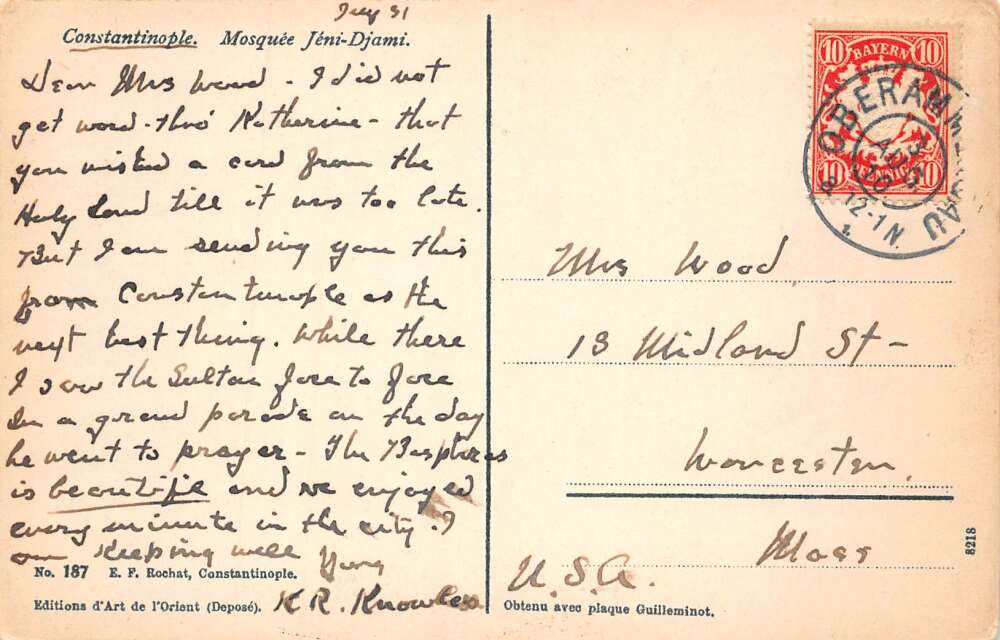 July 31
Constantinople. Mosquée Jéni-Djami.
Dear Mrs Wood - I did not
get word - thro' Katherine - that
you wished a card from the
Holy Land till it was too late.
But I am sending you this
from Constantinople as the
next best thing. While there
I saw the Sultan face to face
in a grand parade on the day
he went to prayer - The Bosphorus
is beautiful and we enjoyed
every minute in the city. I
am keeping well
Yours
K R. Knowles
No. 187 E. F. Rochat, Constantinople.
Editions d'Art de l'Orient (Deposé).
10 BAYERN 10
10 10
OBERAMMERGAU
3
AUG
10
12-1N
Mrs Wood
13 Midland St -
Worcester
Mass
U.S.A.
Obtenu avec plaque Guilleminot.
8218